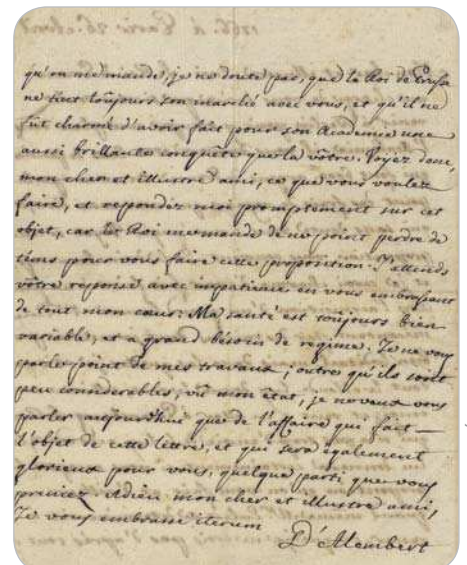 qu'on me mande, je ne doute pas, que le Roi de Prusse
ne tint toûjours son marché avec vous, et qu'il ne
fût charmé d'avoir fait pour son Academie une
aussi brillante conquête que la vôtre. Voyez donc,
mon cher et illustre ami, ce que vous voulez
faire, et repondez moi promptement sur cet
objet, car le Roi me mande de ne point perdre de
tems pour vous faire cette proposition. J'attends
vôtre reponse avec impatience en vous embrassant
de tout mon cœur. Ma santé est toûjours bien
variable, et a grand bésoin de regime. Je ne vous
parle point de mes travaux; outre qu'ils sont
peu considerables, vû mon état, je ne veux vous
parler aujourdhui que de l'affaire qui fait
l'objet de cette lettre, et qui sera également
glorieux pour vous, quelque parti que vous
preniez. Adieu mon cher et illustre ami,
Je vous embrasse iterum
D'Alembert